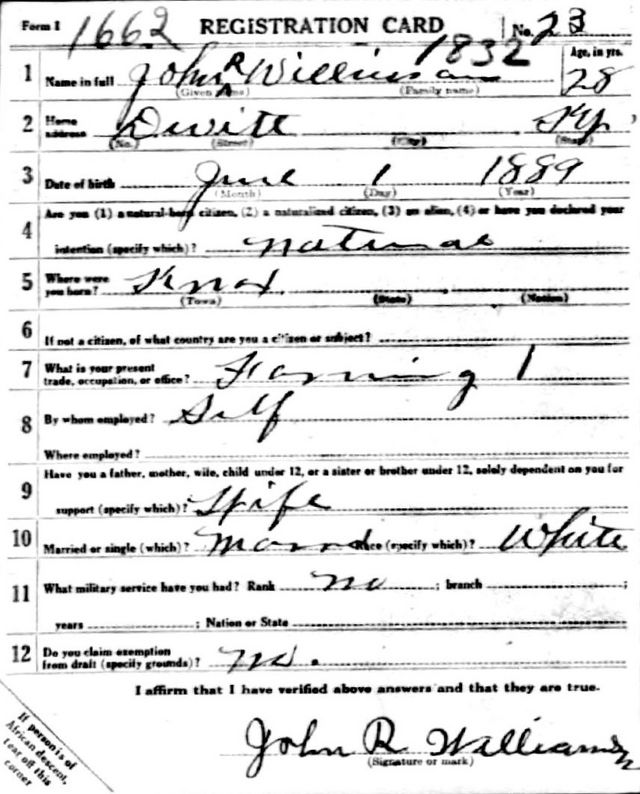 Form 1 1662 REGISTRATION CARD No. 23
1832
Age, in yrs.
1 Name in full John R Williamson 28
(Given name) (Family name)
2 Home address Dewitt Ky
(No.) (Street) (City) (State)
3 Date of birth June 1 1889
(Month) (Day) (Year)
4 Are you (1) a natural-born citizen, (2) a naturalized citizen, (3) an alien, (4) or have you declared your
intention (specify which)? natural
5 Where were you born? Knox
(Town) (State) (Nation)
6 If not a citizen, of what country are you a citizen or subject?
7 What is your present trade, occupation, or office? Farming 1
8 By whom employed? Self
Where employed?
9 Have you a father, mother, wife, child under 12, or a sister or brother under 12, solely dependent on you for
support (specify which)? Wife
10 Married or single (which)? Married Race (specify which)? White
11 What military service have you had? Rank no ; branch ;
years ; Nation or State
12 Do you claim exemption from draft (specify grounds)? No.
I affirm that I have verified above answers and that they are true.
John R Williamson
(Signature or mark)
If person is of
African descent,
tear off this
corner